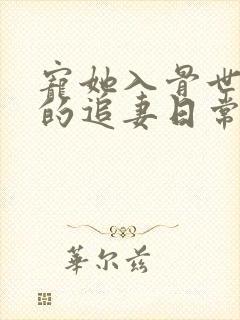 寵她入骨世
的追妻日常
華尔兹